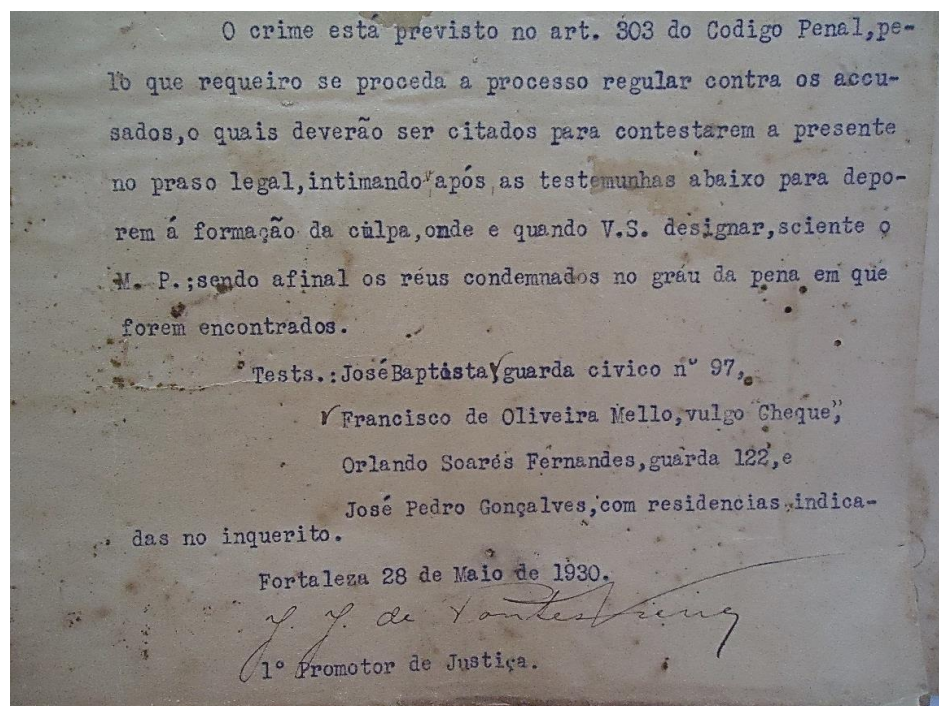 O crime está previsto no art. 303 do Codigo Penal,pe-
lo que requeiro se proceda a processo regular contra os accu-
sados,o quais deverão ser citados para contestarem a presente
no praso legal,intimando após as testemunhas abaixo para depo-
rem á formação da culpa,onde e quando V.S. designar,sciente o
M. P.;sendo afinal os réus condemnados no gráu da pena em que
forem encontrados.
Tests.:José Baptista,guarda civico nº 97,
Francisco de Oliveira Mello,vulgo "Cheque",
Orlando Soares Fernandes,guarda 122,e
José Pedro Gonçalves,com residencias indica-
das no inquerito.
Fortaleza 28 de Maio de 1930.
J. J. de Pontes Vieira
1º Promotor de Justiça.